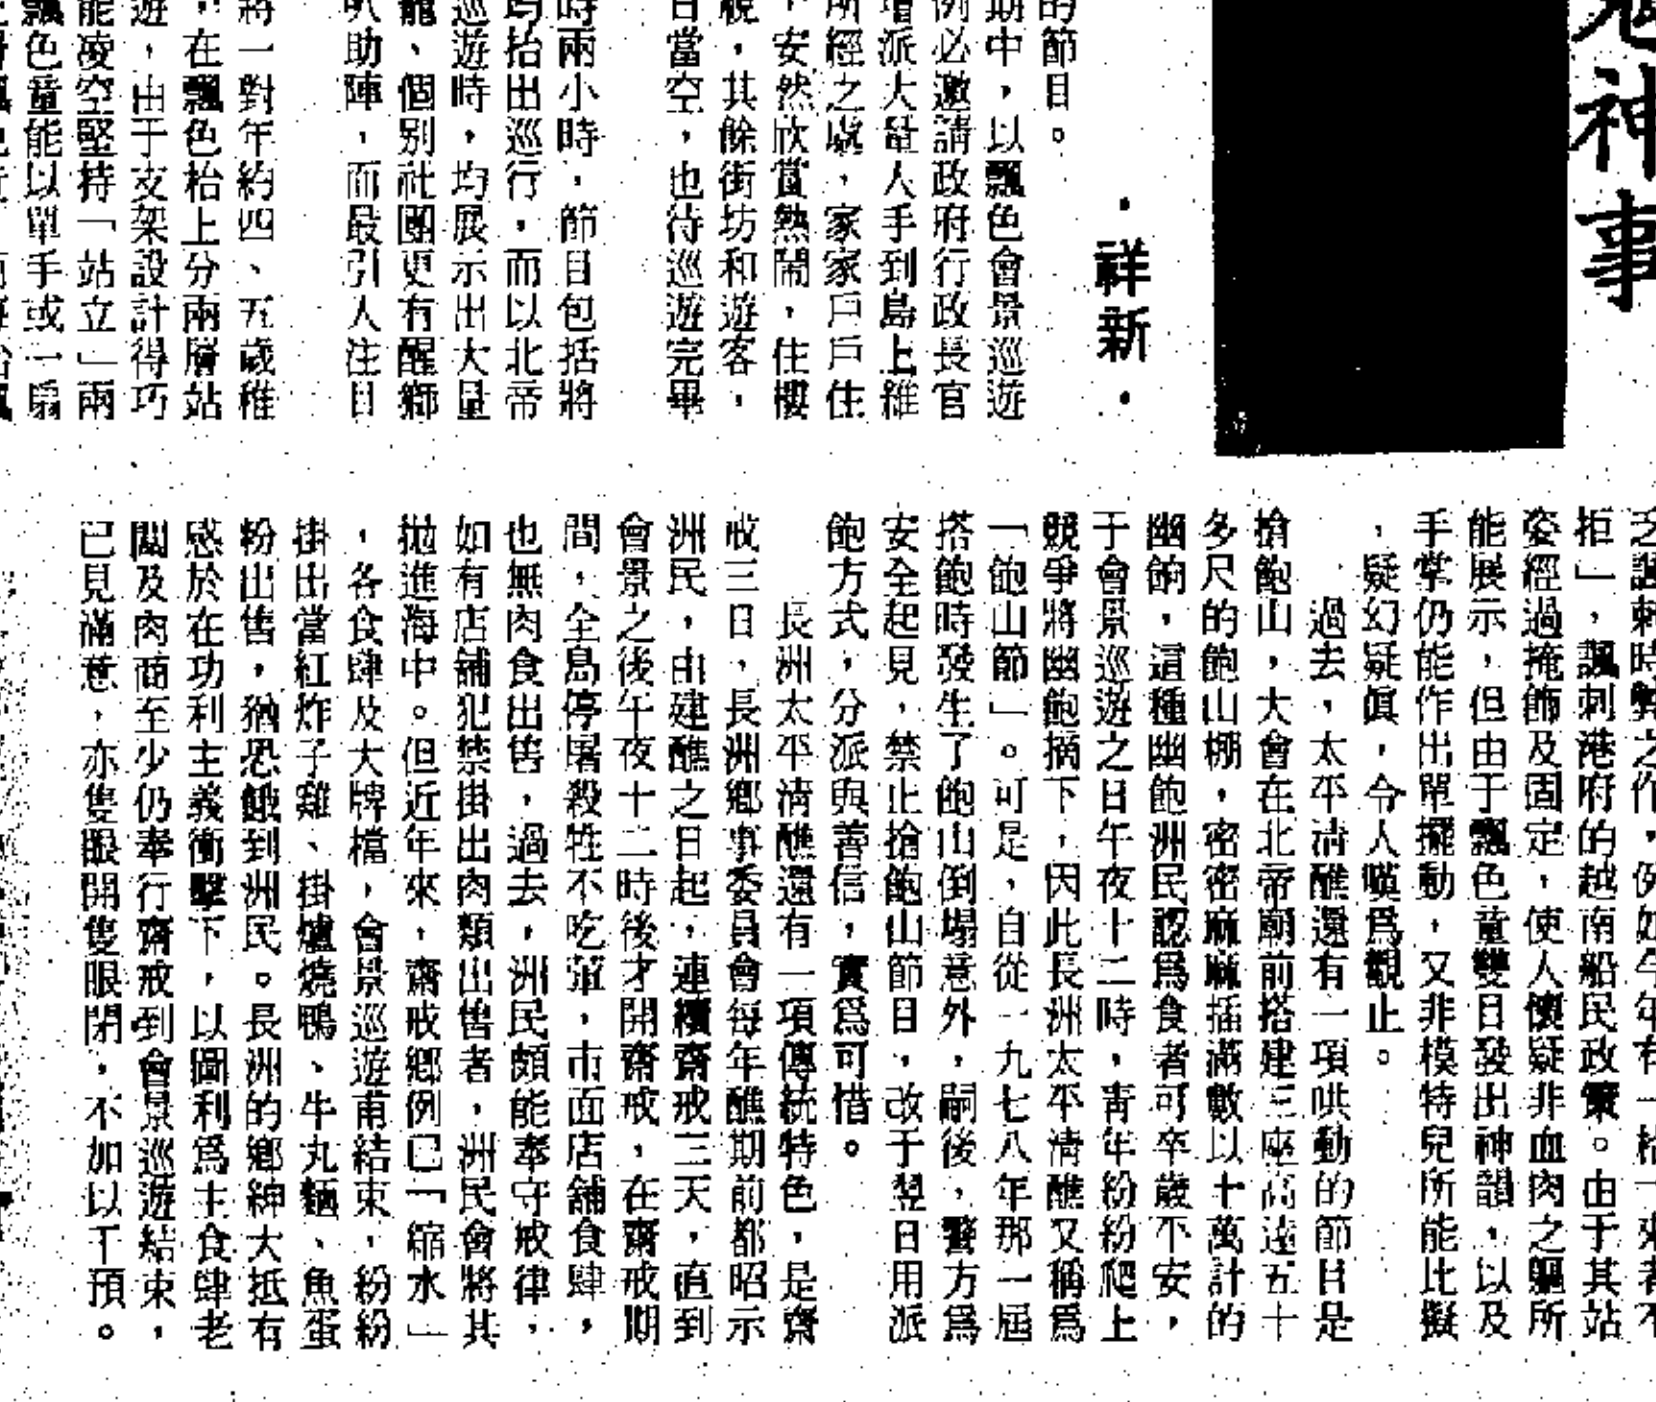 神事
・祥新・
的節目。
期中，以飄色會景巡遊
例必邀請政府行政長官
增派大量人手到島上維
所經之處，家家戶戶住
，安然欣賞熱鬧，住樓
，其餘街坊和遊客，
日當空，也待巡遊完畢
時兩小時，節目包括將
均抬出巡行，而以北帝
巡遊時，均展示出大量
龍、個別社團更有醒獅
助陣，而最引人注目
將一對年約四、五歲稚
，在飄色枱上分兩層站
遊，由于支架設計得巧
能凌空堅持「站立」兩
飄色童能以單手或一扇
乏諷刺時弊之作，例如今年有一枱「來者不
拒」，諷刺港府的越南船民政策。由于其站
姿經過掩飾及固定，使人懷疑非血肉之軀所
能展示，但由于飄色童雙目發出神韻，以及
手掌仍能作出單擺動，又非模特兒所能比擬
，疑幻疑眞，令人嘆爲觀止。
過去，太平清醮還有一項哄動的節目是
搶飽山，大會在北帝廟前搭建三座高達五十
多尺的飽山棚，密密麻麻插滿數以十萬計的
幽飽，這種幽飽洲民認爲食者可卒歲不安，
于會景巡遊之日午夜十二時，青年紛紛爬上
競爭將幽飽摘下，因此長洲太平清醮又稱爲
「飽山節」。可是，自從一九七八年那一屆
搭飽時發生了飽山倒塌意外，嗣後，警方爲
安全起見，禁止搶飽山節目，改于翌日用派
飽方式，分派與善信，實爲可惜。
長洲太平清醮還有一項傳統特色，是齋
戒三日，長洲鄉事委員會每年醮期前都昭示
洲民，由建醮之日起，連續齋戒三天，直到
會景之後午夜十二時後才開齋戒，在齋戒期
間，全島停屠殺牲不吃葷，市面店舖食肆，
也無肉食出售，過去，洲民頗能奉守戒律，
如有店舖犯禁掛出肉類出售者，洲民會將其
拋進海中。但近年來，齋戒鄉例已「縮水」
，各食肆及大牌檔，會景巡遊甫結束，紛紛
掛出當紅炸子雞、掛爐燒鴨、牛丸麵、魚蛋
粉出售，猶恐餓到洲民。長洲的鄉紳大抵有
感於在功利主義衝擊下，以圖利爲主食肆老
闆及肉商至少仍奉行齋戒到會景巡遊結束，
已見滿意，亦隻眼開隻眼閉，不加以干預。